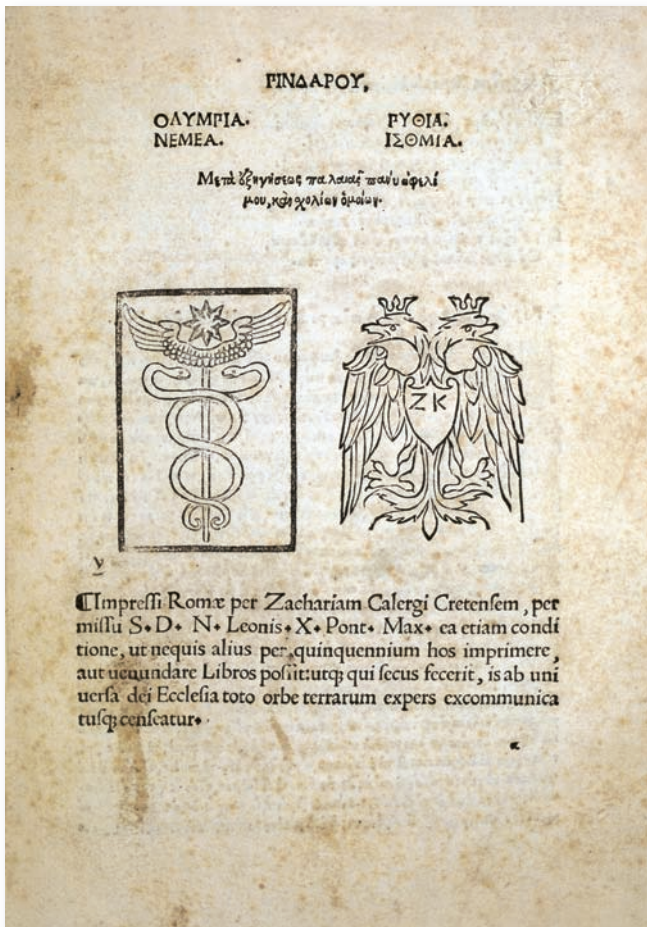 ΠΙΝΔΑΡΟΥ,
ΟΛΥΜΠΙΑ. ΠΥΘΙΑ.
ΝΕΜΕΑ. ΙΣΘΜΙΑ.
Μετὰ ἐξηγήσεως παλαιᾶς πάνυ ὠφελί
μου, καὶ σχολίων ὁμοίων.
Ζ Κ
y
¶Impreſſi Romæ per Zachariam Calergi Cretenſem, per
miſſu S. D. N. Leonis. X. Pont. Max. ea etiam condi
tione, ut nequis alius per quinquennium hos imprimere,
aut uenundare Libros poſſit: utqꝫ qui ſecus fecerit, is ab uni
uerſa dei Eccleſia toto orbe terrarum expers excommunica
tuſqꝫ cenſeatur.
α